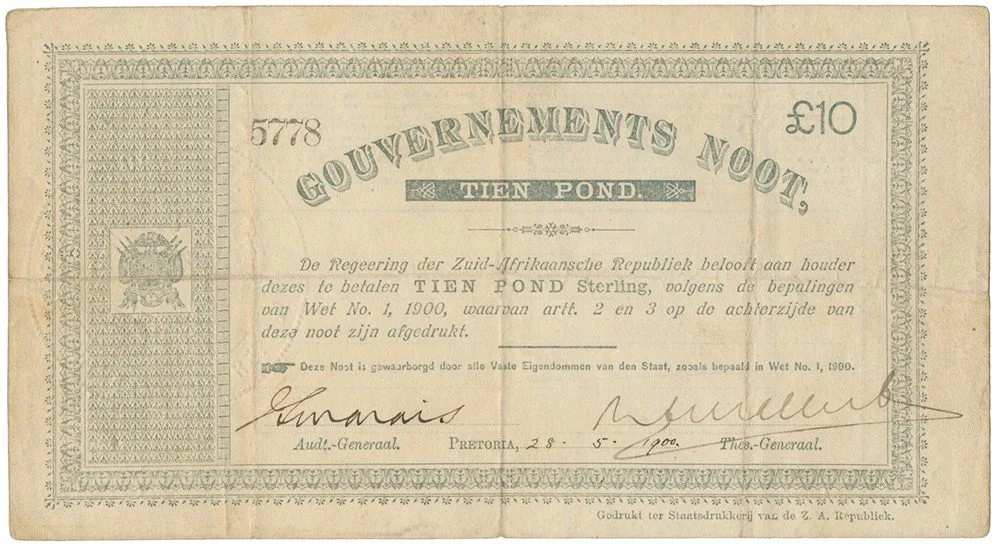 5778
£10
GOUVERNEMENTS NOOT,
TIEN POND.
De Regeering der Zuid-Afrikaansche Republiek belooft aan houder
dezes te betalen TIEN POND Sterling, volgens de bepalingen
van Wet No. 1, 1900, waarvan artt. 2 en 3 op de achterzijde van
deze noot zijn afgedrukt.
Deze Noot is gewaarborgd door alle Vaste Eigendommen van den Staat, zooals bepaald in Wet No. 1, 1900.
Audt.-Generaal. PRETORIA, 28 - 5 - 1900. Thes.-Generaal.
Gedrukt ter Staatsdrukkerij van de Z. A. Republiek.